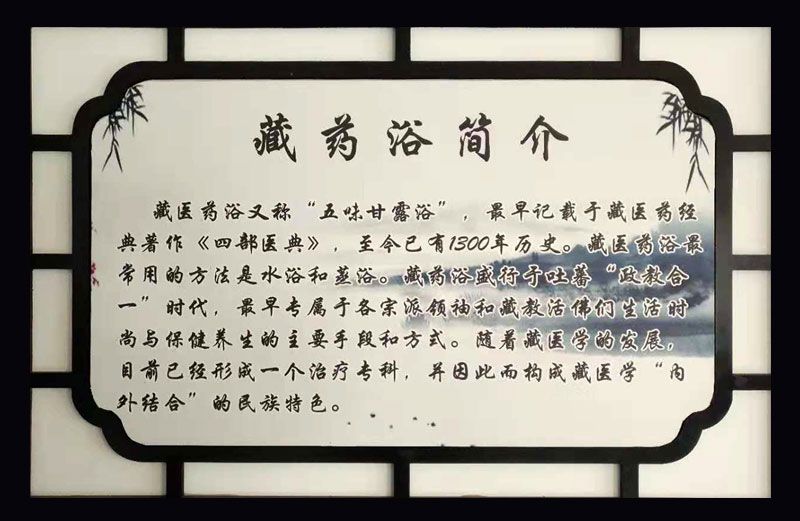 藏药浴简介
藏医药浴又称“五味甘露浴”，最早记载于藏医药经
典著作《四部医典》，至今已有1300年历史。藏医药浴最
常用的方法是水浴和蒸浴。藏药浴盛行于吐蕃“政教合
一”时代，最早专属于各宗派领袖和藏教活佛们生活时
尚与保健养生的主要手段和方式。随着藏医学的发展，
目前已经形成一个治疗专科，并因此而构成藏医学“内
外结合”的民族特色。